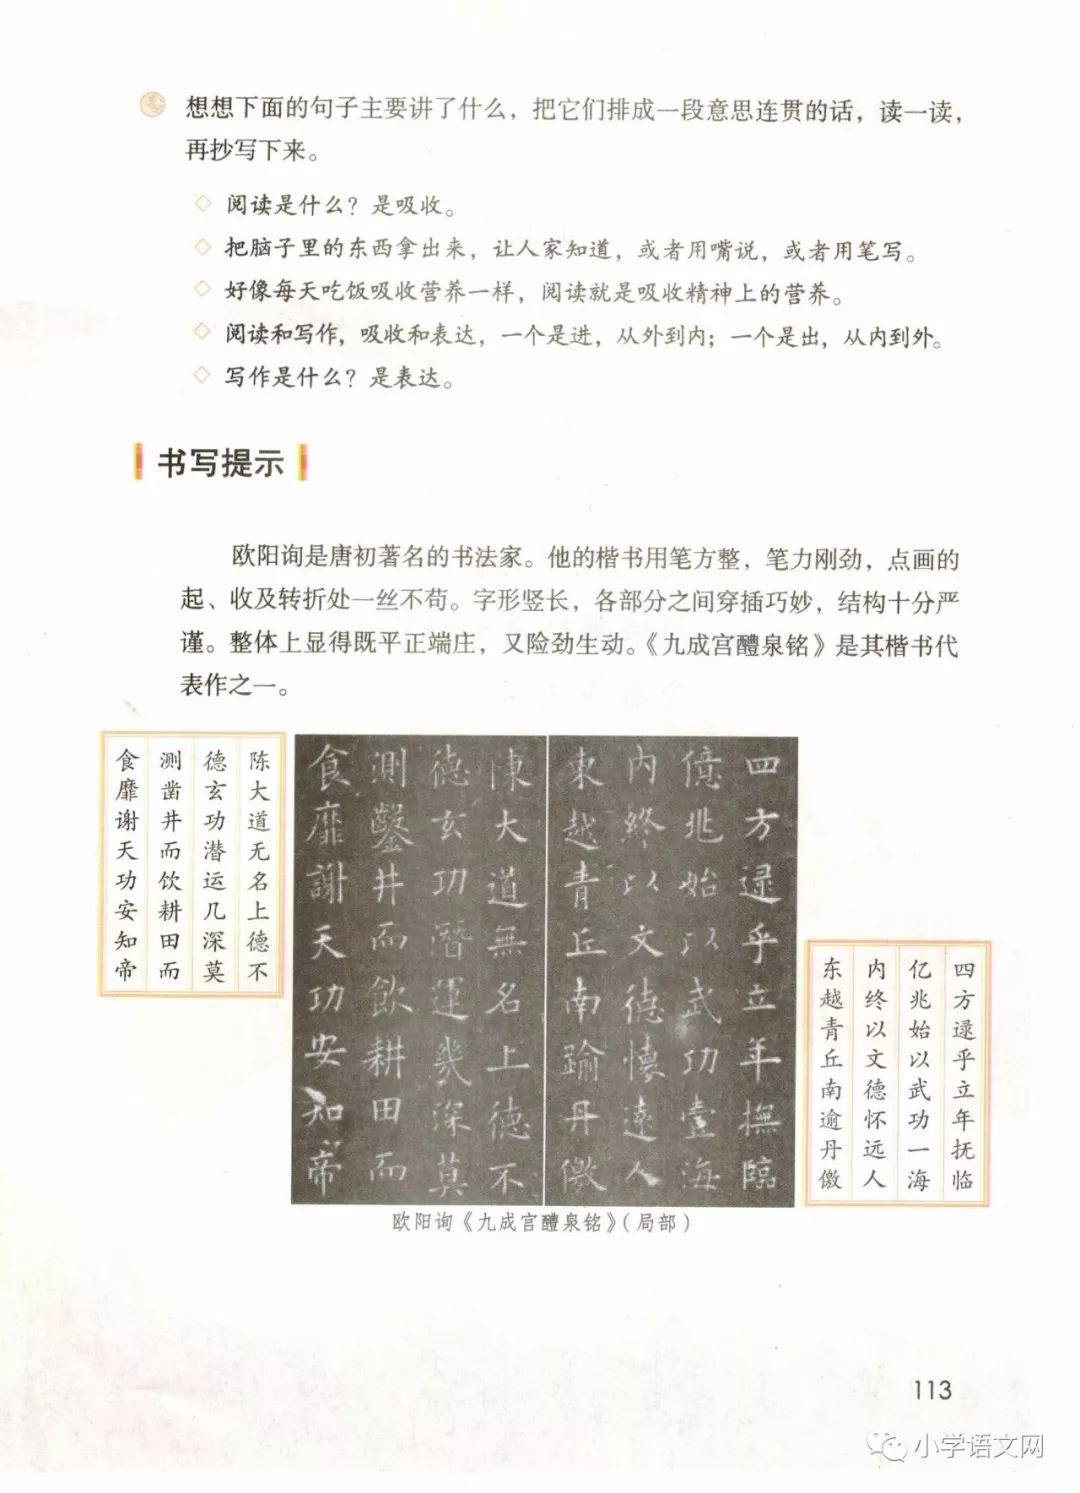 想想下面的句子主要讲了什么，把它们排成一段意思连贯的话，读一读，
再抄写下来。
◇ 阅读是什么？是吸收。
◇ 把脑子里的东西拿出来，让人家知道，或者用嘴说，或者用笔写。
◇ 好像每天吃饭吸收营养一样，阅读就是吸收精神上的营养。
◇ 阅读和写作，吸收和表达，一个是进，从外到内；一个是出，从内到外。
◇ 写作是什么？是表达。
书写提示
欧阳询是唐初著名的书法家。他的楷书用笔方整，笔力刚劲，点画的
起、收及转折处一丝不苟。字形竖长，各部分之间穿插巧妙，结构十分严
谨。整体上显得既平正端庄，又险劲生动。《九成宫醴泉铭》是其楷书代
表作之一。
四方逯乎立年抚临
亿兆始以武功一海
内终以文德怀远人
东越青丘南逾丹徼
四方逯乎立年撫臨
億兆始以武功壹海
内終以文德懷遠人
東越青丘南踰丹徼
陳大道無名上德不
德玄功潛運幾深莫
測鑿井而飲耕田而
食靡謝天功安知帝
陈大道无名上德不
德玄功潜运几深莫
测凿井而饮耕田而
食靡谢天功安知帝
欧阳询《九成宫醴泉铭》（局部）
113
小学语文网